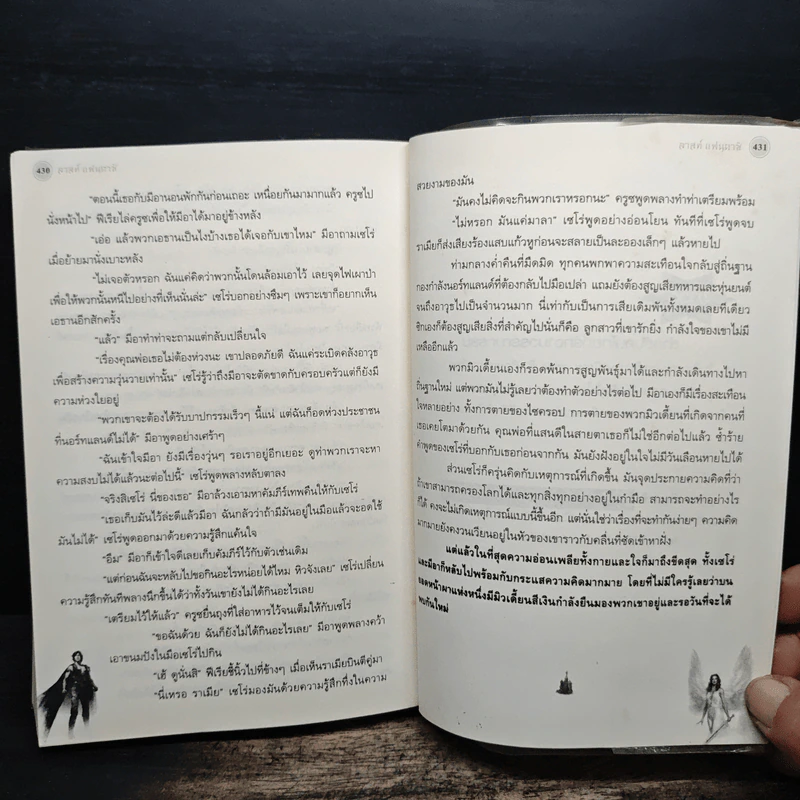 430 ลาสต์ แฟนตาซี
“ตอนนี้เธอกับมีอานอนพักกันก่อนเถอะ เหนื่อยกันมามากแล้ว ครูซไป
นั่งหน้าไป” ฟีเรียไล่ครูซเพื่อให้มีอาได้มาอยู่ข้างหลัง
“เอ่อ แล้วพวกเอธานเป็นไงบ้างเธอได้เจอกับเขาไหม” มีอาถามเซโร่
เมื่อย้ายมานั่งเบาะหลัง
“ไม่เจอตัวหรอก ฉันแค่คิดว่าพวกนั้นโดนล้อมเอาไว้ เลยจุดไฟเผาป่า
เพื่อให้พวกนั้นหนีไปอย่างที่เห็นนั่นล่ะ” เซโร่บอกอย่างซึมๆ เพราะเขาก็อยากเห็น
เอธานอีกสักครั้ง
“แล้ว” มีอาทำท่าจะถามแต่กลับเปลี่ยนใจ
“เรื่องคุณพ่อเธอไม่ต้องห่วงนะ เขาปลอดภัยดี ฉันแค่ระเบิดคลังอาวุธ
เพื่อสร้างความวุ่นวายเท่านั้น” เซโร่รู้ว่าถึงมีอาจะตัดขาดกับครอบครัวแต่ก็ยังมี
ความห่วงใยอยู่
“พวกเขาจะต้องได้รับบาปกรรมเร็วๆ นี้แน่ แต่ฉันก็อดห่วงประชาชน
ที่นอร์ทแลนด์ไม่ได้” มีอาพูดอย่างเศร้าๆ
“ฉันเข้าใจมีอา ยังมีเรื่องวุ่นๆ รอเราอยู่อีกเยอะ ดูท่าพวกเราจะหา
ความสงบไม่ได้แล้วนะต่อไปนี้” เซโร่พูดพลางหลับตาลง
“จริงสิเซโร่ นี่ของเธอ” มีอาล้วงเอามหาคัมภีร์เทพคืนให้กับเซโร่
“เธอเก็บมันไว้ล่ะดีแล้วมีอา ฉันกลัวว่าถ้ามีมันอยู่ในมือแล้วจะอดใช้
มันไม่ได้” เซโร่พูดออกมาด้วยความรู้สึกแค้นใจ
“อืม” มีอาก็เข้าใจดีเลยเก็บคัมภีร์ไว้กับตัวเช่นเดิม
“แต่ก่อนฉันจะหลับไปขอกินอะไรหน่อยได้ไหม หิวจังเลย” เซโร่เปลี่ยน
ความรู้สึกทันทีพลางนึกขึ้นได้ว่าทั้งวันเขายังไม่ได้กินอะไรเลย
“เตรียมไว้ให้แล้ว” ครูซยื่นถุงที่ใส่อาหารไว้จนเต็มให้กับเซโร่
“ขอฉันด้วย ฉันก็ยังไม่ได้กินอะไรเลย” มีอาพูดพลางคว้า
เอาขนมปังในมือเซโร่ไปกิน
“เฮ้ ดูนั่นสิ” ฟีเรียชี้นิ้วไปที่ข้างๆ เมื่อเห็นราเมียบินตีคู่มา
“นี่เหรอ ราเมีย” เซโร่มองมันด้วยความรู้สึกทึ่งในความ
ลาสต์ แฟนตาซี 431
สวยงามของมัน
“มันคงไม่คิดจะกินพวกเราหรอกนะ” ครูซพูดพลางทำท่าเตรียมพร้อม
“ไม่หรอก มันแค่มาลา” เซโร่พูดอย่างอ่อนโยน ทันทีที่เซโร่พูดจบ
ราเมียก็ส่งเสียงร้องแสบแก้วหูก่อนจะสลายเป็นละอองเล็กๆ แล้วหายไป
ท่ามกลางค่ำคืนที่มืดมิด ทุกคนพกพาความสะเทือนใจกลับสู่ถิ่นฐาน
กองกำลังนอร์ทแลนด์ที่ต้องกลับไปมือเปล่า แถมยังต้องสูญเสียทหารและหุ่นยนต์
จนถึงอาวุธไปเป็นจำนวนมาก นี่เท่ากับเป็นการเสียเดิมพันทั้งหมดเลยทีเดียว
ซิกเองก็ต้องสูญเสียสิ่งที่สำคัญไปนั่นก็คือ ลูกสาวที่เขารักยิ่ง กำลังใจของเขาไม่มี
เหลืออีกแล้ว
พวกมิวเตี้ยนเองก็รอดพ้นการสูญพันธุ์มาได้และกำลังเดินทางไปหา
ถิ่นฐานใหม่ แต่พวกมันไม่รู้เลยว่าต้องทำตัวอย่างไรต่อไป มีอาเองก็มีเรื่องสะเทือน
ใจหลายอย่าง ทั้งการตายของไซครอป การตายของพวกมิวเตี้ยนที่เกิดจากคนที่
เธอเคยโตมาด้วยกัน คุณพ่อที่แสนดีในสายตาเธอก็ไม่ใช่อีกต่อไปแล้ว ซ้ำร้าย
คำพูดของเซโร่ที่บอกกับเธอก่อนจากกัน มันยังฝังอยู่ในใจไม่มีวันเลือนหายไปได้
ส่วนเซโร่ก็ครุ่นคิดกับเหตุการณ์ที่เกิดขึ้น มันจุดประกายความคิดที่ว่า
ถ้าเขาสามารถครองโลกได้และทุกสิ่งทุกอย่างอยู่ในกำมือ สามารถจะทำอย่างไร
ก็ได้ คงจะไม่เกิดเหตุการณ์แบบนี้ขึ้นอีก แต่นั่นใช่ว่าเรื่องที่จะทำกันง่ายๆ ความคิด
มากมายยังคงวนเวียนอยู่ในหัวของเขาราวกับคลื่นที่ซัดเข้าหาฝั่ง
แต่แล้วในที่สุดความอ่อนเพลียทั้งกายและใจก็มาถึงขีดสุด ทั้งเซโร่
และมีอาก็หลับไปพร้อมกับกระแสความคิดมากมาย โดยที่ไม่มีใครรู้เลยว่าบน
ยอดหน้าผาแห่งหนึ่งมีมิวเตี้ยนสีเงินกำลังยืนมองพวกเขาอยู่และรอวันที่จะได้
พบกันใหม่